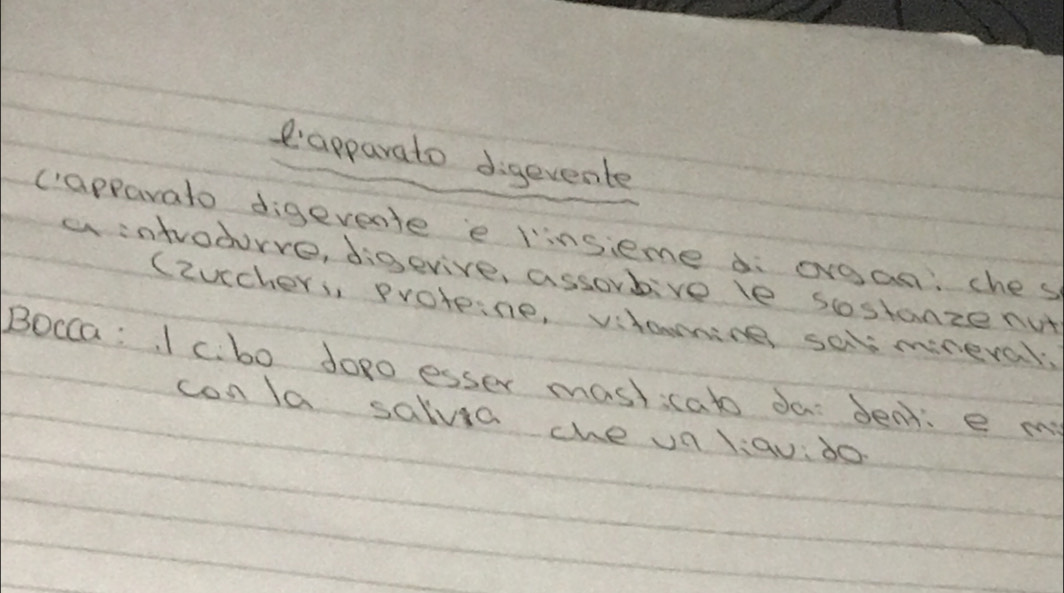 l'apparato digerente
L'apparato digerente è l'insieme di organi che s
a introdurre, digerire, assorbire le sostanze nut
(zuccheri, proteine, vitamine, sali minerali
Bocca: il cibo dopo esser masticato dai denti e mi
con la saliva che un liquido.